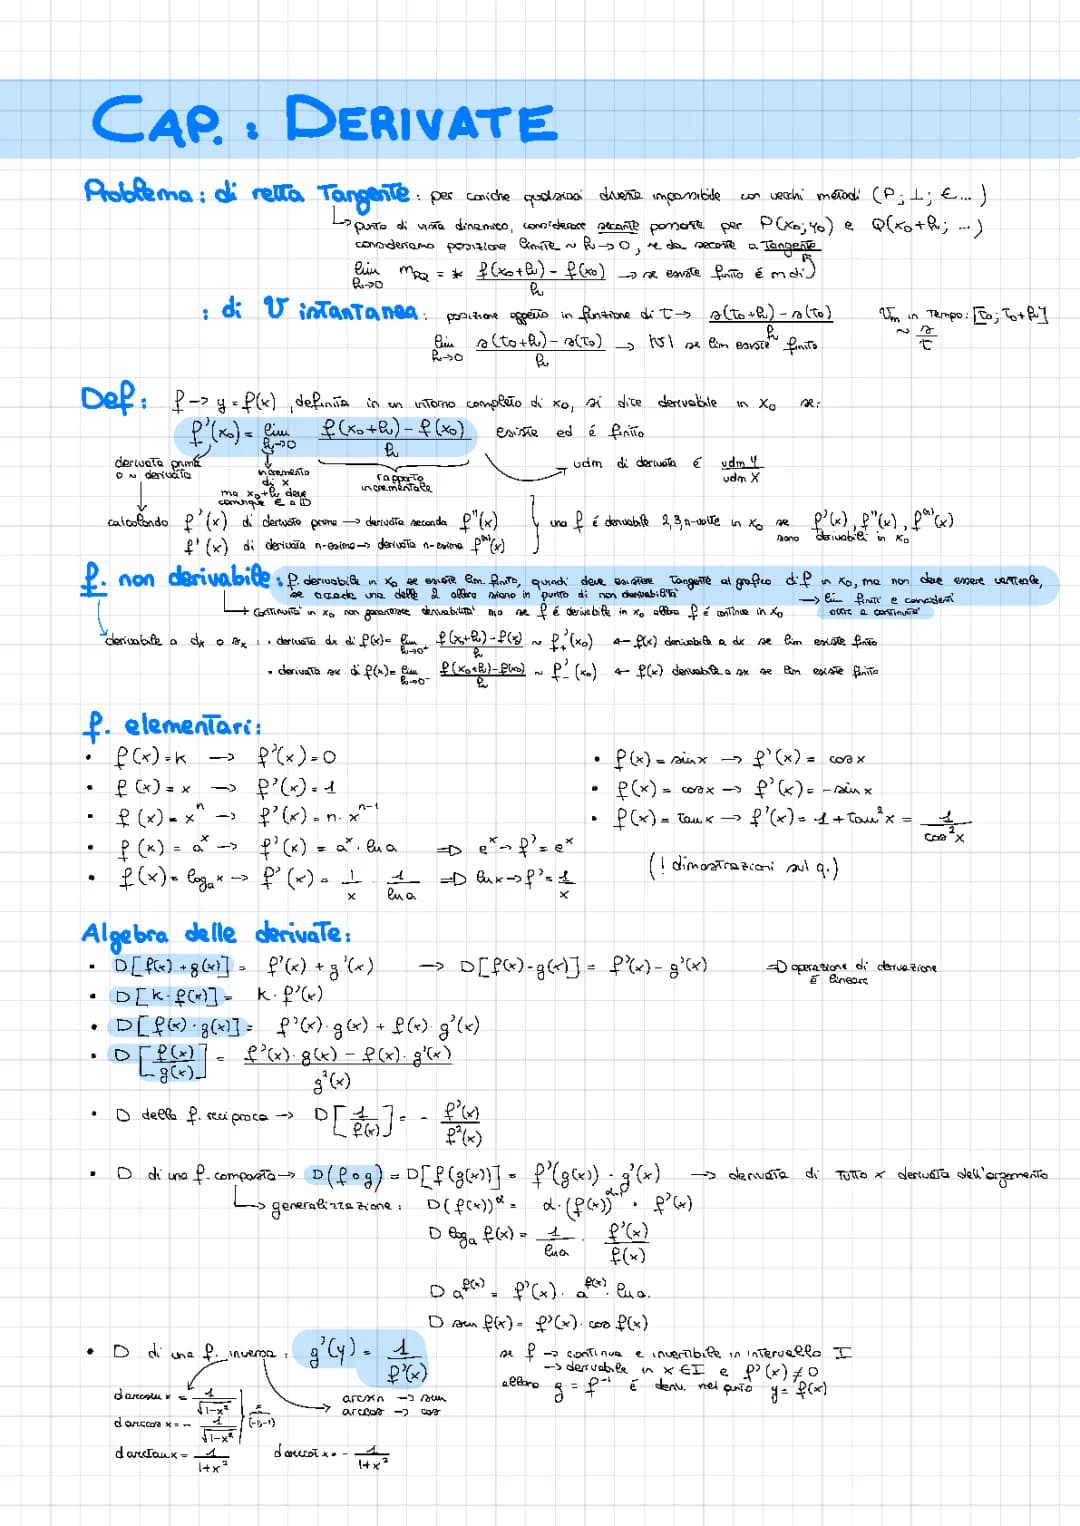 CAP. : DERIVATE
Problema : di retta Tangente : per coniche qualsiasi diventa impossibile con vecchi metodi (P; ⊥; ε...)
↳ punto di vista dinamico, considerare secante passante per P(x₀; y₀) e Q(x₀+h; ...)
consideriamo posizione limite ~ h→0, se da secante a Tangente
lim h→0 m_PQ = * f(x₀+h) - f(x₀) / h → se esiste finito è m di
: di V istantanea : posizione oggetto in funzione di t → s(t₀+h) - s(t₀) / h
Vm in Tempo: [t₀; t₀+h] ~ s/t
lim h→0 s(t₀+h) - s(t₀) / h → |v| se lim esiste finito
Def : f → y = f(x), definita in un intorno completo di x₀, si dice derivabile in x₀ se:
f'(x₀) = lim h→0 f(x₀+h) - f(x₀) / h esiste ed è finito
derivata prima o ~ derivata
incremento di x
ma x₀+h deve comunque ∈ a D
rapporto incrementale
udm di derivata è udm y / udm x
calcolando f'(x) di derivata prima → derivata seconda f''(x)
f'(x) di derivata n-esima → derivata n-esima f⁽ⁿ⁾(x)
una f è derivabile 2,3,n-volte in x₀ se f'(x), f''(x), f⁽ⁿ⁾(x)
sono derivabili in x₀
f. non derivabile : f. derivabile in x₀ se esiste lim. finito, quindi deve esistere Tangente al grafico di f in x₀, ma non deve essere verticale,
se accade una delle 2 allora siamo in punto di non derivabilità
→ lim finiti e coincidenti oltre a continuità
↳ Continuità in x₀ non garantisce derivabilità ma se f è derivabile in x₀ allora f è continua in x₀
derivabile a dx o sx : · derivata dx di f(x) = lim h→0⁺ f(x₀+h) - f(x₀) / h ~ f'₊(x₀) ← f(x) derivabile a dx se lim esiste finito
· derivata sx di f(x) = lim h→0⁻ f(x₀+h) - f(x₀) / h ~ f'₋(x₀) ← f(x) derivabile a sx se lim esiste finito
f. elementari :
• f(x) = k → f'(x) = 0
• f(x) = x → f'(x) = 1
• f(x) = xⁿ → f'(x) = n · xⁿ⁻¹
• f(x) = aˣ → f'(x) = aˣ · ln a ⇒ eˣ → f' = eˣ
• f(x) = logₐ x → f'(x) = 1/x · 1/ln a ⇒ ln x → f' = 1/x
• f(x) = sin x → f'(x) = cos x
• f(x) = cos x → f'(x) = - sin x
• f(x) = Tan x → f'(x) = 1 + Tan² x = 1 / cos² x
(! dimostrazioni sul q.)
Algebra delle derivate :
• D[f(x) + g(x)] = f'(x) + g'(x) → D[f(x) - g(x)] = f'(x) - g'(x) ⇒ operazione di derivazione è lineare
• D[k · f(x)] = k · f'(x)
• D[f(x) · g(x)] = f'(x) · g(x) + f(x) · g'(x)
• D[f(x) / g(x)] = f'(x) · g(x) - f(x) · g'(x) / g²(x)
• D della f. reciproca → D[1 / f(x)] = - f'(x) / f²(x)
• D di una f. composta → D(f∘g) = D[f(g(x))] = f'(g(x)) · g'(x) → derivata di Tutto × derivata dell'argomento
↳ generalizzazione : D(f(x))^α = α · (f(x))^α-1 · f'(x)
D logₐ f(x) = 1/ln a · f'(x)/f(x)
D a^f(x) = f'(x) · a^f(x) · ln a.
D sen f(x) = f'(x) · cos f(x)
• D di una f. inversa : g'(y) = 1 / f'(x)
se f → continua e invertibile in intervallo I
→ derivabile in x ∈ I e f'(x) ≠ 0
allora g = f⁻¹ è deriv. nel punto y = f(x)
d arcsin x = 1 / √1-x²
d arccos x = - 1 / √1-x²
(-1;1)
arcsin → sin
arccos → cos
d arctan x = 1 / 1+x²
d arccot x = - 1 / 1+x²